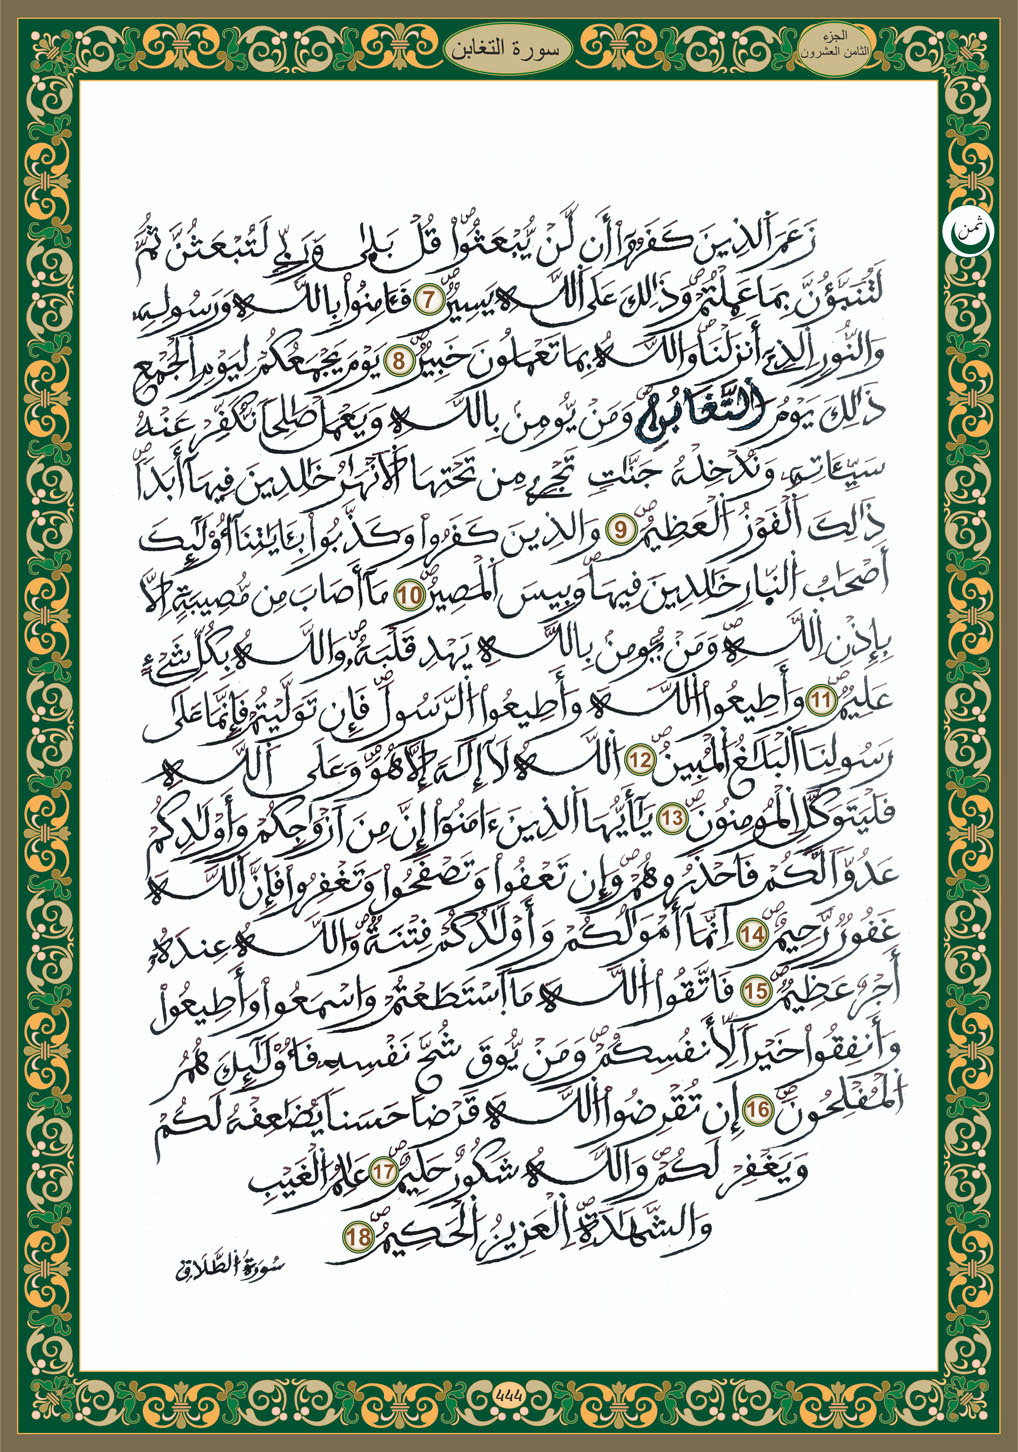 سورة التغابن
الجزء
الثامن العشرون
ثمن
زَعَمَ اَ۬لذِينَ كَفَرُوٓاْ أَن لَّنْ يُّبْعَثُواْۖ قُلْ بَل۪ىٰ وَرَبِّے لَتُبْعَثُنَّ ثُمَّ
لَتُنَبَّؤُنَّ بِمَا عَمِلْتُمْۖ وَذَٰلِكَ عَلَى اَ۬للَّهِ يَسِيرٞۖ 7 فَـَٔامِنُواْ بِاللَّهِ وَرَسُولِهِۦ
وَالنُّورِ اِ۬لذِےٓ أَنزَلْنَاۖ وَاللَّهُ بِمَا تَعْمَلُونَ خَبِيرٞۖ 8 يَوْمَ يَجْمَعُكُمْ لِيَوْمِ اِ۬لْجَمْعِ
ذَٰلِكَ يَوْمُ اُ۬لتَّغَابُنِۖ وَمَنْ يُّومِنۢ بِاللَّهِ وَيَعْمَلْ صَٰلِحاٗ نُّكَفِّرْ عَنْهُ
سَيِّـَٔاتِهِۦ وَنُدْخِلْهُ جَنَّٰتٖ تَجْرِے مِن تَحْتِهَا اَ۬لْأَنْهَٰرُ خَٰلِدِينَ فِيهَآ أَبَداٗۖ
ذَٰلِكَ اَ۬لْفَوْزُ اُ۬لْعَظِيمُۖ 9 وَالذِينَ كَفَرُواْ وَكَذَّبُواْ بِـَٔايَٰتِنَآ أُوْلَٰٓئِكَ
أَصْحَٰبُ اُ۬لنّ۪ارِ خَٰلِدِينَ فِيهَاۖ وَبِيسَ اَ۬لْمَصِيرُۖ 10 مَآ أَصَابَ مِن مُّصِيبَةٍ اِلَّا
بِإِذْنِ اِ۬للَّهِۖ وَمَنْ يُّومِنۢ بِاللَّهِ يَهْدِ قَلْبَهُۥۖ وَاللَّهُ بِكُلِّ شَےْءٍ
عَلِيمٞۖ 11 وَأَطِيعُواْ اُ۬للَّهَ وَأَطِيعُواْ اُ۬لرَّسُولَۖ فَإِن تَوَلَّيْتُمْ فَإِنَّمَا عَلَىٰ
رَسُولِنَا اَ۬لْبَلَٰغُ اُ۬لْمُبِينُۖ 12 اُ۬للَّهُ لَآ إِلَٰهَ إِلَّا هُوَۖ وَعَلَى اَ۬للَّهِ
فَلْيَتَوَكَّلِ اِ۬لْمُومِنُونَۖ 13 يَٰٓأَيُّهَا اَ۬لذِينَ ءَامَنُوٓاْ إِنَّ مِنَ اَزْوَٰجِكُمْ وَأَوْلَٰدِكُمْ
عَدُوّاٗ لَّكُمْ فَاحْذَرُوهُمْۖ وَإِن تَعْفُواْ وَتَصْفَحُواْ وَتَغْفِرُواْ فَإِنَّ اَ۬للَّهَ
غَفُورٞ رَّحِيمٌۖ 14 اِنَّمَآ أَمْوَٰلُكُمْ وَأَوْلَٰدُكُمْ فِتْنَةٞۖ وَاللَّهُ عِندَهُۥٓ
أَجْرٌ عَظِيمٞۖ 15 فَاتَّقُواْ اُ۬للَّهَ مَا اَ۪سْتَطَعْتُمْ وَاسْمَعُواْ وَأَطِيعُواْ
وَأَنفِقُواْ خَيْراٗ لِّأَنفُسِكُمْۖ وَمَنْ يُّوقَ شُحَّ نَفْسِهِۦ فَأُوْلَٰٓئِكَ هُمُ
اُ۬لْمُفْلِحُونَۖ 16 إِن تُقْرِضُواْ اُ۬للَّهَ قَرْضاً حَسَناٗ يُضَٰعِفْهُ لَكُمْ
وَيَغْفِرْ لَكُمْۖ وَاللَّهُ شَكُورٌ حَلِيمٌۖ 17 عَٰلِمُ اُ۬لْغَيْبِ
وَالشَّهَٰدَةِۖ اِ۬لْعَزِيزُ اُ۬لْحَكِيمُۖ 18
سُورَةُ اُ۬لطَّلَاقِ
444